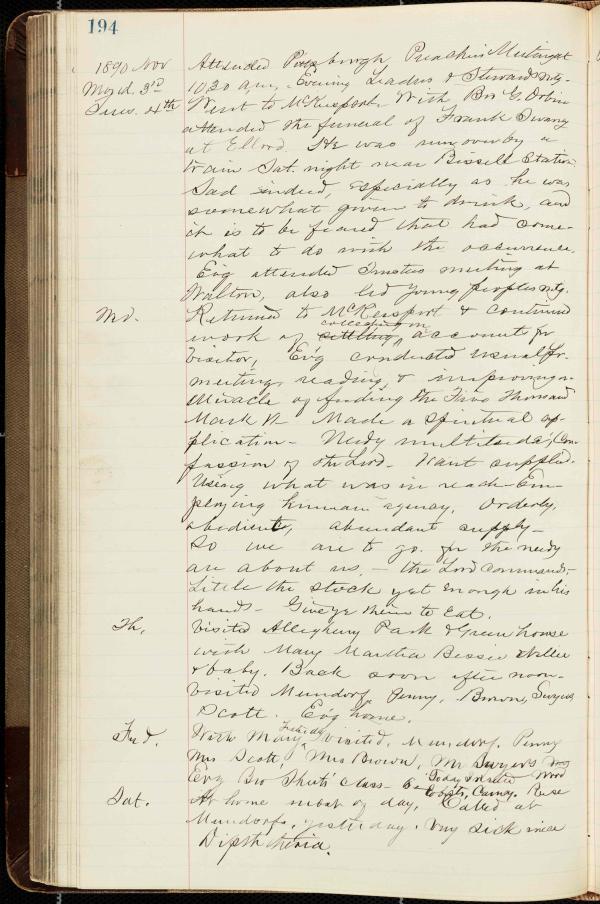 194
1890 Nov Attended Preachers Meeting at
Mond. 3rd 10.30 a.m. Evening Leaders & Steward mtg.
Tues. 4th Went to McKeesport. With Bro G. Orbin
attended the funeral of Frank Swany
at Ellrod. He was run over by a
train Sat. night near Bissell Station.
Sad indeed, especially as he was
somewhat given to drink, and
it is to be feared that had some-
what to do with the occurrence.
Ev'g attended Trustees meeting at
Walton, also led young peoples mtg.
Wed. Returned to McKeesport & continued
collecting on
work of settling, accounts for
Visitor, Ev'g conducted usual
meeting, reading, & improving
Miracle of feeding the Five Thousand
Mark Made a spiritual ap-
plication - Needy multitude, Com-
passion of the Lord - Want supplied.
Using what was in reach - Em-
ploying human agency. Orderly,
obedient, abundant supply -
So we are to go. for the needy
are about us, - the Lord commands, -
Little the stock yet enough in his
hands - Give ye them to Eat.
Th. Visited Allegheny Park & Green house
with Mary Martha Bessie Willie
& baby. Back soon after noon.
Visited Mundorf, Penny, Brown, Swyers
Scott. Ev'g home.
Frid. With Mary visited, Mundorf, Penny
Mrs Scott, Mrs Brown, Mr Swyers
Evg Bro Shuts' class - Today visited Wood
Carney. Rase
Sat. At home most of day, Called at
Mundorfs, yesterday. Very sick in ca
Dipth theria.